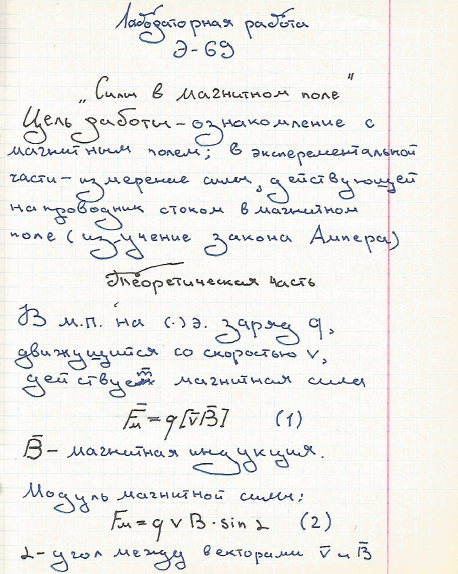 Лабораторная работа
Э-69
„Силы в магнитном поле"
Цель работы - ознакомление с
магнитным полем; в эксперементальной
части - измерение силы, действующей
на проводник с током в магнитном
поле (изучение закона Ампера)
Теоретическая часть
В м.п. на (·) э. заряд q,
движущийся со скоростью v,
действует магнитная сила
F̄м = q[v̄B̄] (1)
B̄ - магнитная индукция.
Модуль магнитной силы:
Fм = q v B · sin α (2)
α - угол между векторами v̄ и B̄